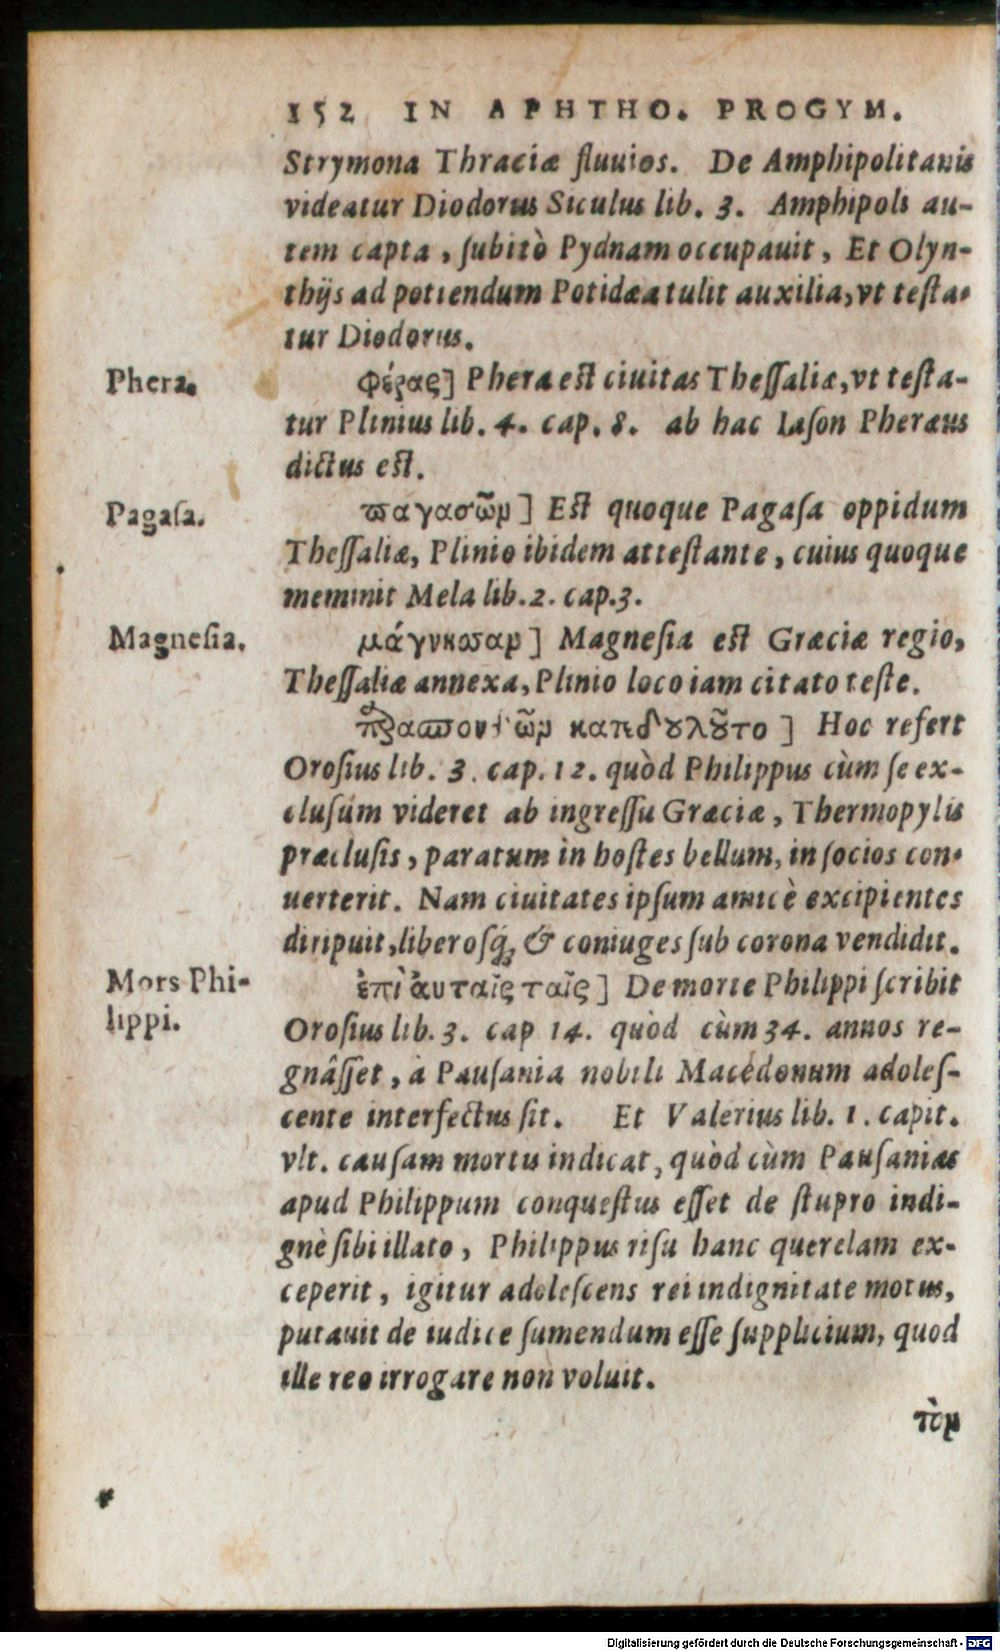 152 IN APHTHO. PROGYM.
Strymona Thraciæ fluuios. De Amphipolitanis
videatur Diodorus Siculus lib. 3. Amphipoli au-
tem capta, ſubitò Pydnam occupauit, Et Olyn-
thijs ad potiendum Potidæa tulit auxilia, vt teſta-
tur Diodorus.
Phera.
φέρας] Phera eſt ciuitas Theſſaliæ, vt teſta-
tur Plinius lib. 4. cap. 8. ab hac Iaſon Pheræus
dictus eſt.
Pagaſa.
ϖαγασῶν] Eſt quoque Pagaſa oppidum
Theſſaliæ, Plinio ibidem atteſtante, cuius quoque
meminit Mela lib. 2. cap. 3.
Magneſia.
Magneſia eſt Græciæ regio,
Theſſaliæ annexa, Plinio loco iam citato teſte.
Hoc refert
Oroſius lib. 3. cap. 12. quòd Philippus cùm ſe ex-
cluſum videret ab ingreſſu Græciæ, Thermopylis
præcluſis, paratum in hoſtes bellum, in ſocios con-
uerterit. Nam ciuitates ipſum amicè excipientes
diripuit, liberoſq́; & coniuges ſub corona vendidit.
Mors Phi-
lippi.
ἐπὶ ἀυταῖς ταῖς] De morte Philippi ſcribit
Oroſius lib. 3. cap 14. quòd cùm 34. annos re-
gnâſſet, à Pauſania nobili Macedonum adoleſ-
cente interfectus ſit. Et Valerius lib. 1. capit.
vlt. cauſam mortis indicat, quòd cùm Pauſanias
apud Philippum conqueſtus eſſet de ſtupro indi-
gnè ſibi illato, Philippus riſu hanc querelam ex-
ceperit, igitur adoleſcens rei indignitate motus,
putauit de iudice ſumendum eſſe ſupplicium, quod
ille reo irrogare non voluit.
τὸν
Digitalisierung gefördert durch die Deutsche Forschungsgemeinschaft - DFG